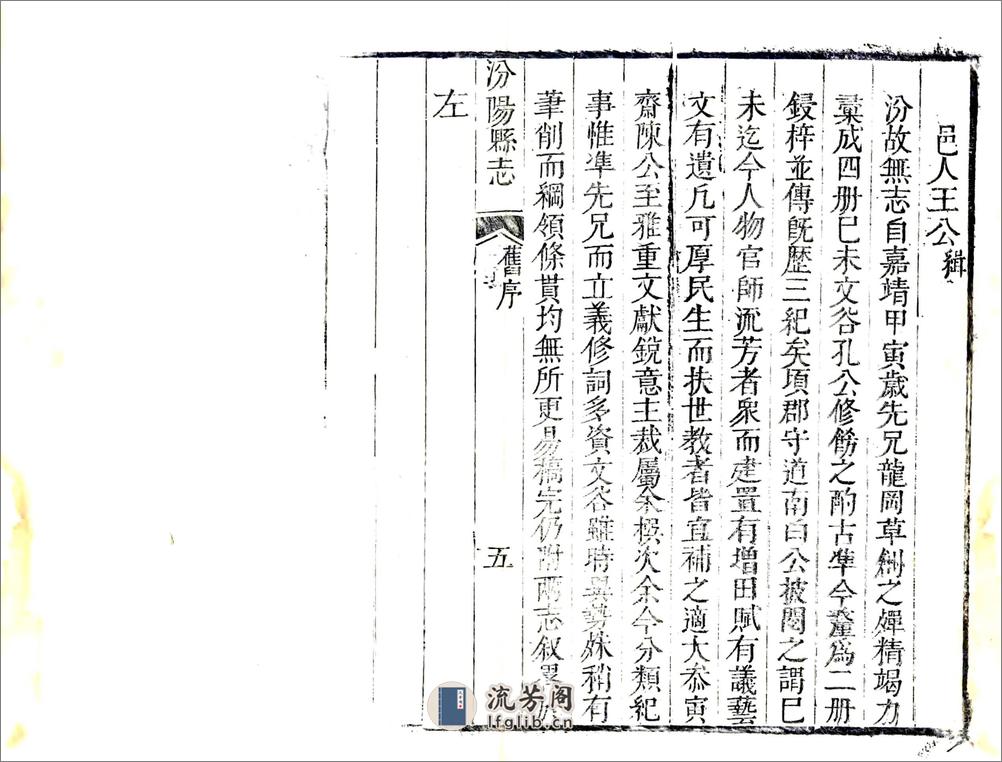 邑人王公緝
汾故無志自嘉靖甲寅歲先兄龍岡草創之殫精竭力
藁成四册已未文谷孔公修飭之酌古準今釐為二册
鋟梓並傳旣歷三紀矣頃郡守道南白公披閱之謂已
未迄今人物官師流芳者衆而建置有增田賦有議藝
文有遺凡可厚民生而扶世教者皆宜補之適大叅寅
齋陳公至雅重文獻銳意主裁屬余撰次余今分類紀
事惟凖先兄而立義修詞多資文谷雖時與勢殊稍有
筆削而綱領條貫均無所更易稿完仍附兩志叙畧
汾陽縣志
舊序
五
左
流芳阁
lfglib.cn